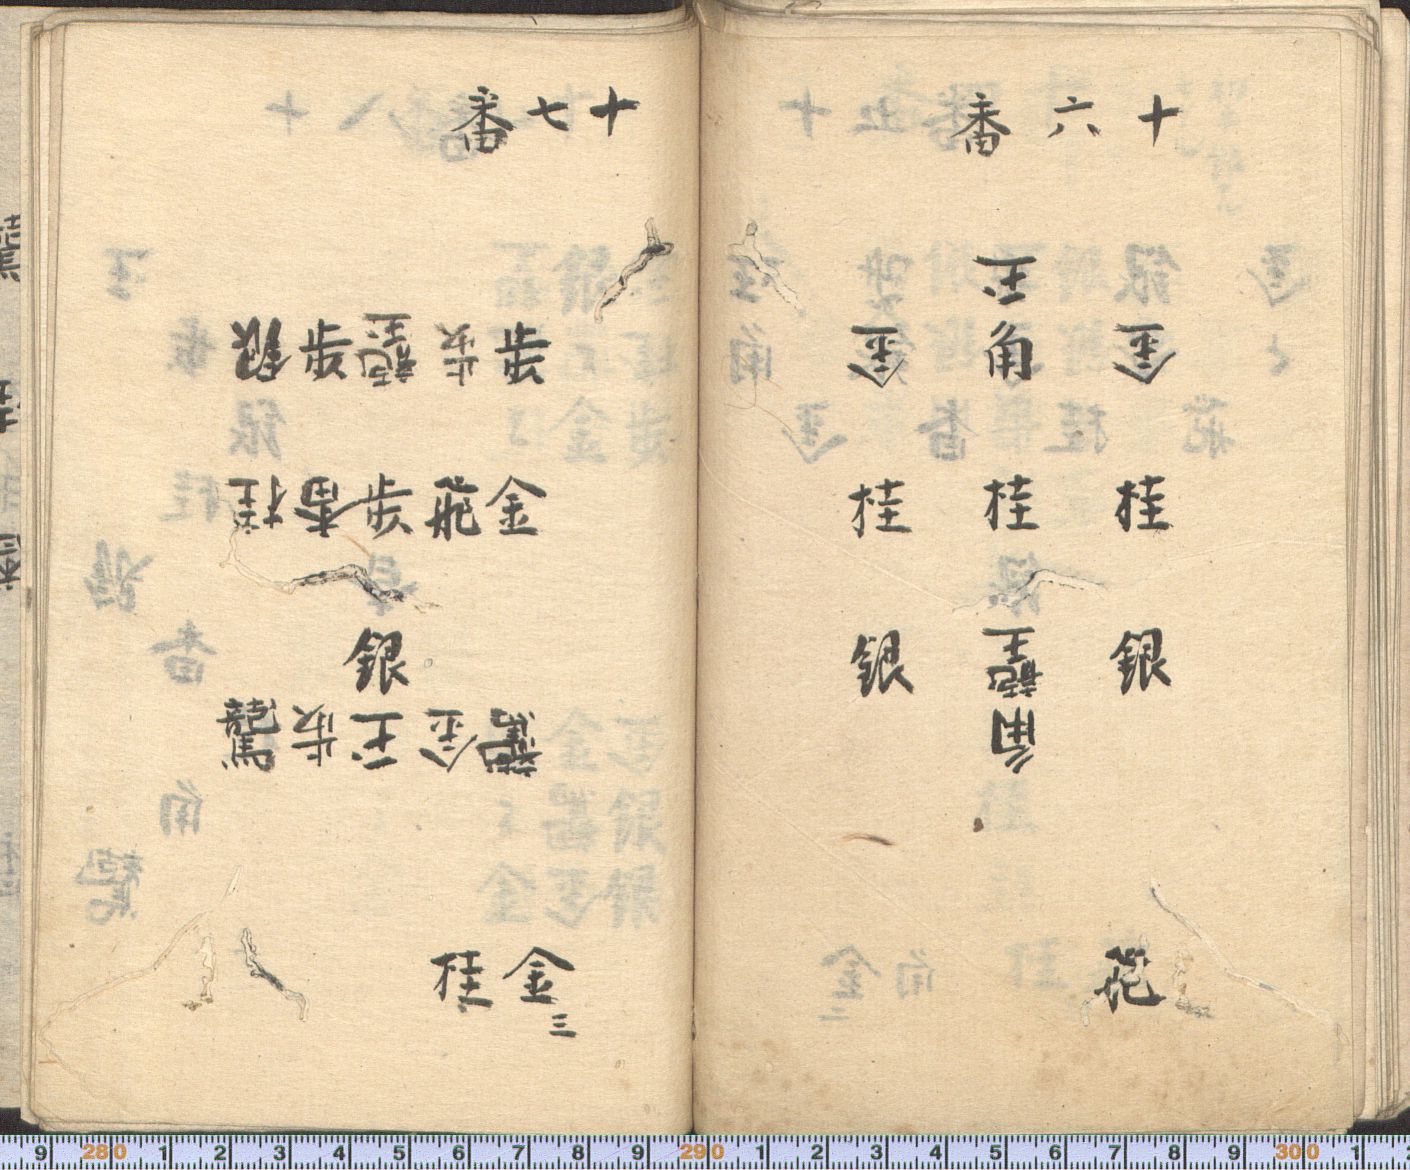 十六番
玉
金 角 金
桂 桂 桂
銀 龍王 銀
角
飛
十七番
歩 歩 龍王 歩 銀
金 飛 歩 香 桂
銀
龍馬 金 玉 歩 龍馬
金三 桂
9 280 1 2 3 4 5 6 7 8 9 290 1 2 3 4 5 6 7 8 9 300 1